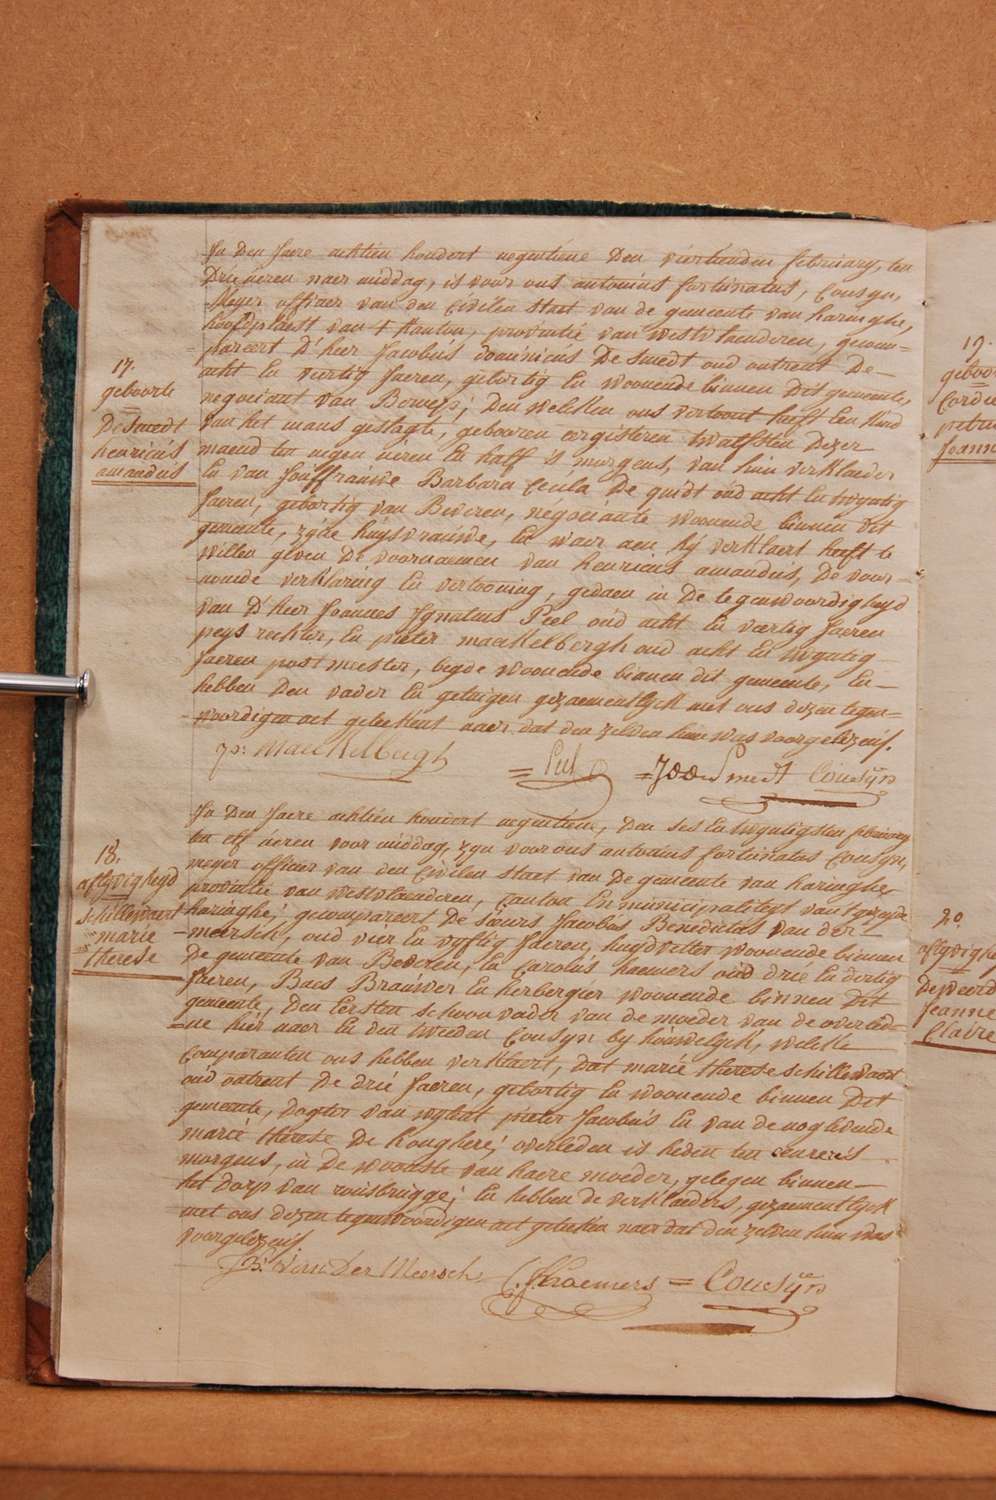 17.
geboorte
De Smedt
henricus
amandus
In den Jaere achtien hondert negentiene den viertienden february, ten
Drie ueren naer middag, is voor ons antonius fortunatus, Cousyn,
Meyer officier van den Civilen staet van de gemeente van haringhe,
hoofdplaest van t Kanton, provintie van westvlaenderen, gecom-
pareert D'heer Jacobus dominicus De Smedt oud ontrent De-
acht En veertig Jaeren, gebortig En woonende binnen dit gemeente,
negociant van Beroep; den welcken ons vertoont heeft Een kind
van het mans geslagte, gebooren eergisteren twalfsten dezer
maend ten negen ueren En half s morgens, van him verklaeder
En van Jouffrauwe Barbara Cecila De quidt oud acht En twyntig
Jaeren, gebortig van Beveren, negociante woonende binnen dit
gemeente, zyne huysvrauwe, En waer aen hy verklaert heeft te
willen geven De voornaemen van henricus amandus, De voor-
noemde verklaring En vertooning, gedaen in De tegenwoordigheyd
van D'heer Joannes Ignatius Peel oud acht En veertig Jaeren
peys rechter, En pieter maeckelbergh oud acht En twyntig
Jaeren postmeester, beyde woonende binnen dit gemeente, En-
hebben Den vader En getuigen gezaementlyck met ons dezen tegen-
woordigen act geteekent naer dat den zelden him was voorgelezen.
Maeckelbergh = Peel = De Smedt Cousyn
18.
aflyvigheyd
Schillewaert
marie
therese
In Den Jaere achtien hondert negentiene, den ses En twyntigsten february
ten elf ueren voor middag, zyn voor ons antonius fortunatus Cousyn,
meyer officier van den Civilen staet van De gemeente van haringhe
provintie van westvlaenderen, Canton En municipaliteyt van t gezeyde
haringhe; gecompareert De sieurs Jacobus Benedictus van der-
meersch, oud vier En vyftig Jaeren, huydvetter woonende binnen
De gemeente van Beveren, En Carolus haemers oud drie En dertig
Jaeren, Baes Brauwer En herbergier woonende binnen Dit
gemeente, Den Eersten schoonvader van de moeder van de overlede-
ne hier naer En den tweeden Cousyn by houwelyck, welcke
Comparanten ons hebben verklaert, dat marie therese schillewaert
oud ontrent De drie Jaeren, gebortig En woonende binnen Dit
gemeente, dogter van wylent pieter Jacobus En van de nog levende
marie therese De Houghere; overleden is heden ten een uere s
morgens, in De wooninste van haere moeder, gelegen binnen-
het dorp van rousbrugge; En hebben de verklaeders, gezaementlyck
met ons dezen tegenwoordigen act geteeken naer dat den zelden him was
voorgelezen
Van Der Meersch C. Haemers = Cousyn
19.
20